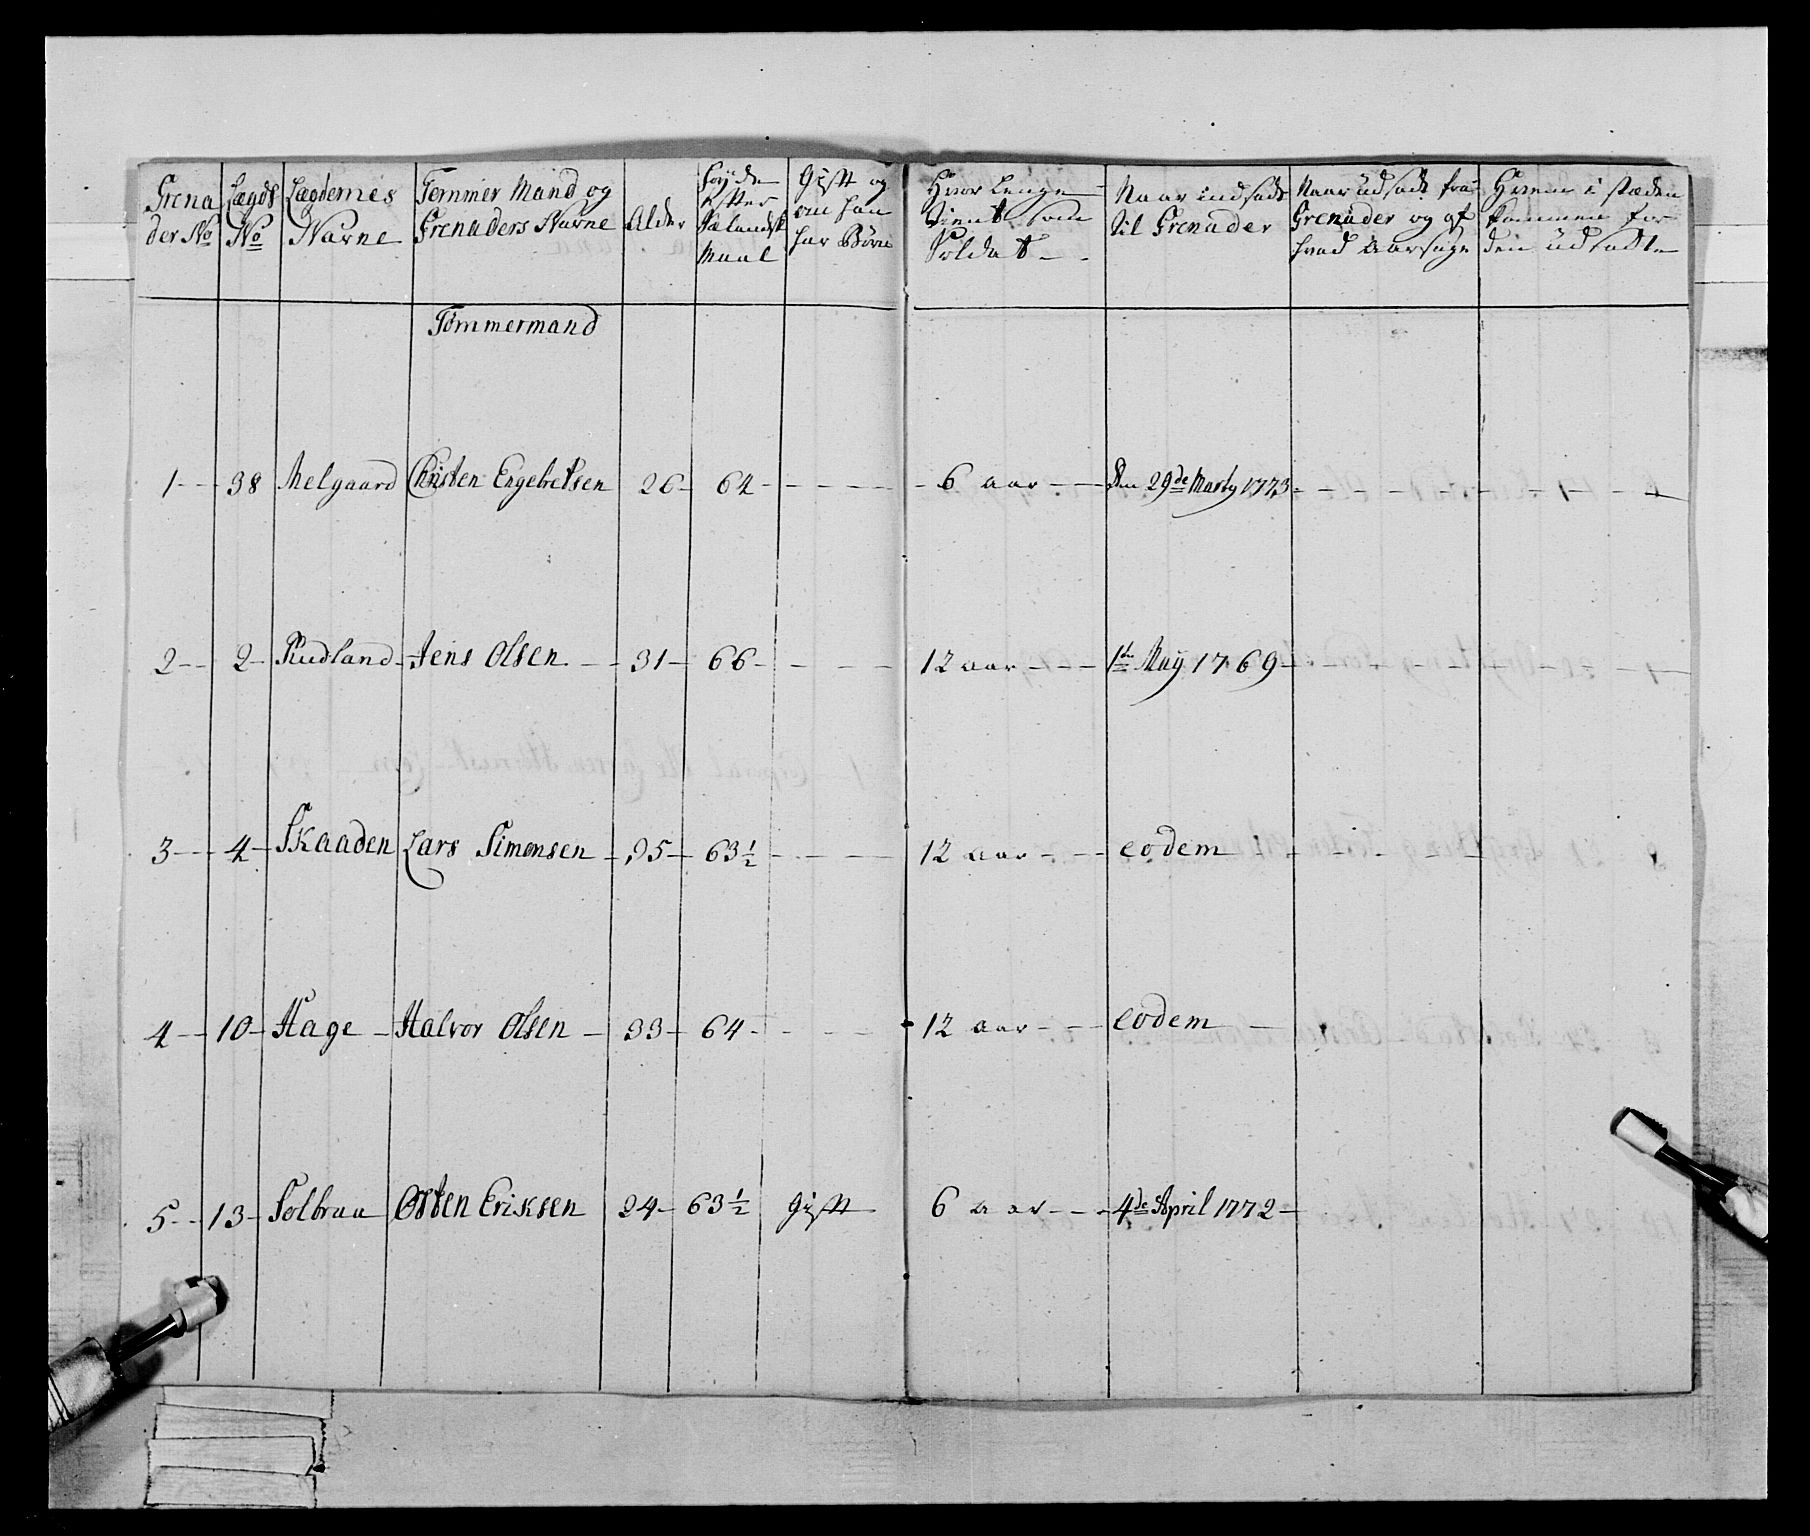 Grena der No | Lægds No | Lægdernes Navne | Tømmer Mand og Grenaders Navne | Alder | Høyde efter Siælandsk Maal | Gift og om han har Børn | Hvor lenge tient som Soldat | Naar indsadt til Grenader | Naar udsadt fra Grenader og af hvad Aarsage | Hvem i stæden kommen for den udsatte
Tømmermand
1 - - 38 Melgaard Christen Engebretsen 26 - 64 - - - - - 6 aar - - Den 29de Marty 1773 - - - -
2 - - 2 - Rudland - Jens Olsen - - 31 - 66 - - - - 12 aar - - - 1te Maÿ 1769 - - - -
3 - - 4 - Skaaden Lars Simensen - 35 - 63½ - - - - 12 aar - - - eodem - - - -
4 - - 10 - Hage - Halvor Olsen - 33 - 64 - - - - 12 aar - - - eodem -
5 - - 13 - Solbraa Østen Eriksen 24 - 63½ Gift 6 aar - - - 4de April 1772 -